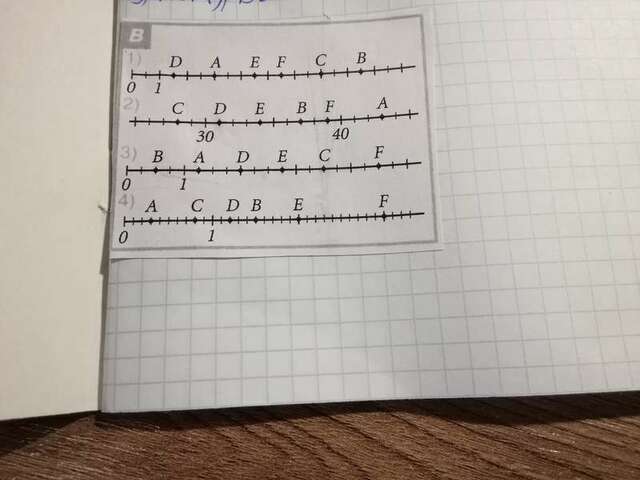 B
1) D A E F C B
0 1
2) C D E B F A
30 40
3) B A D E C F
0 1
4) A C D B E F
0 1